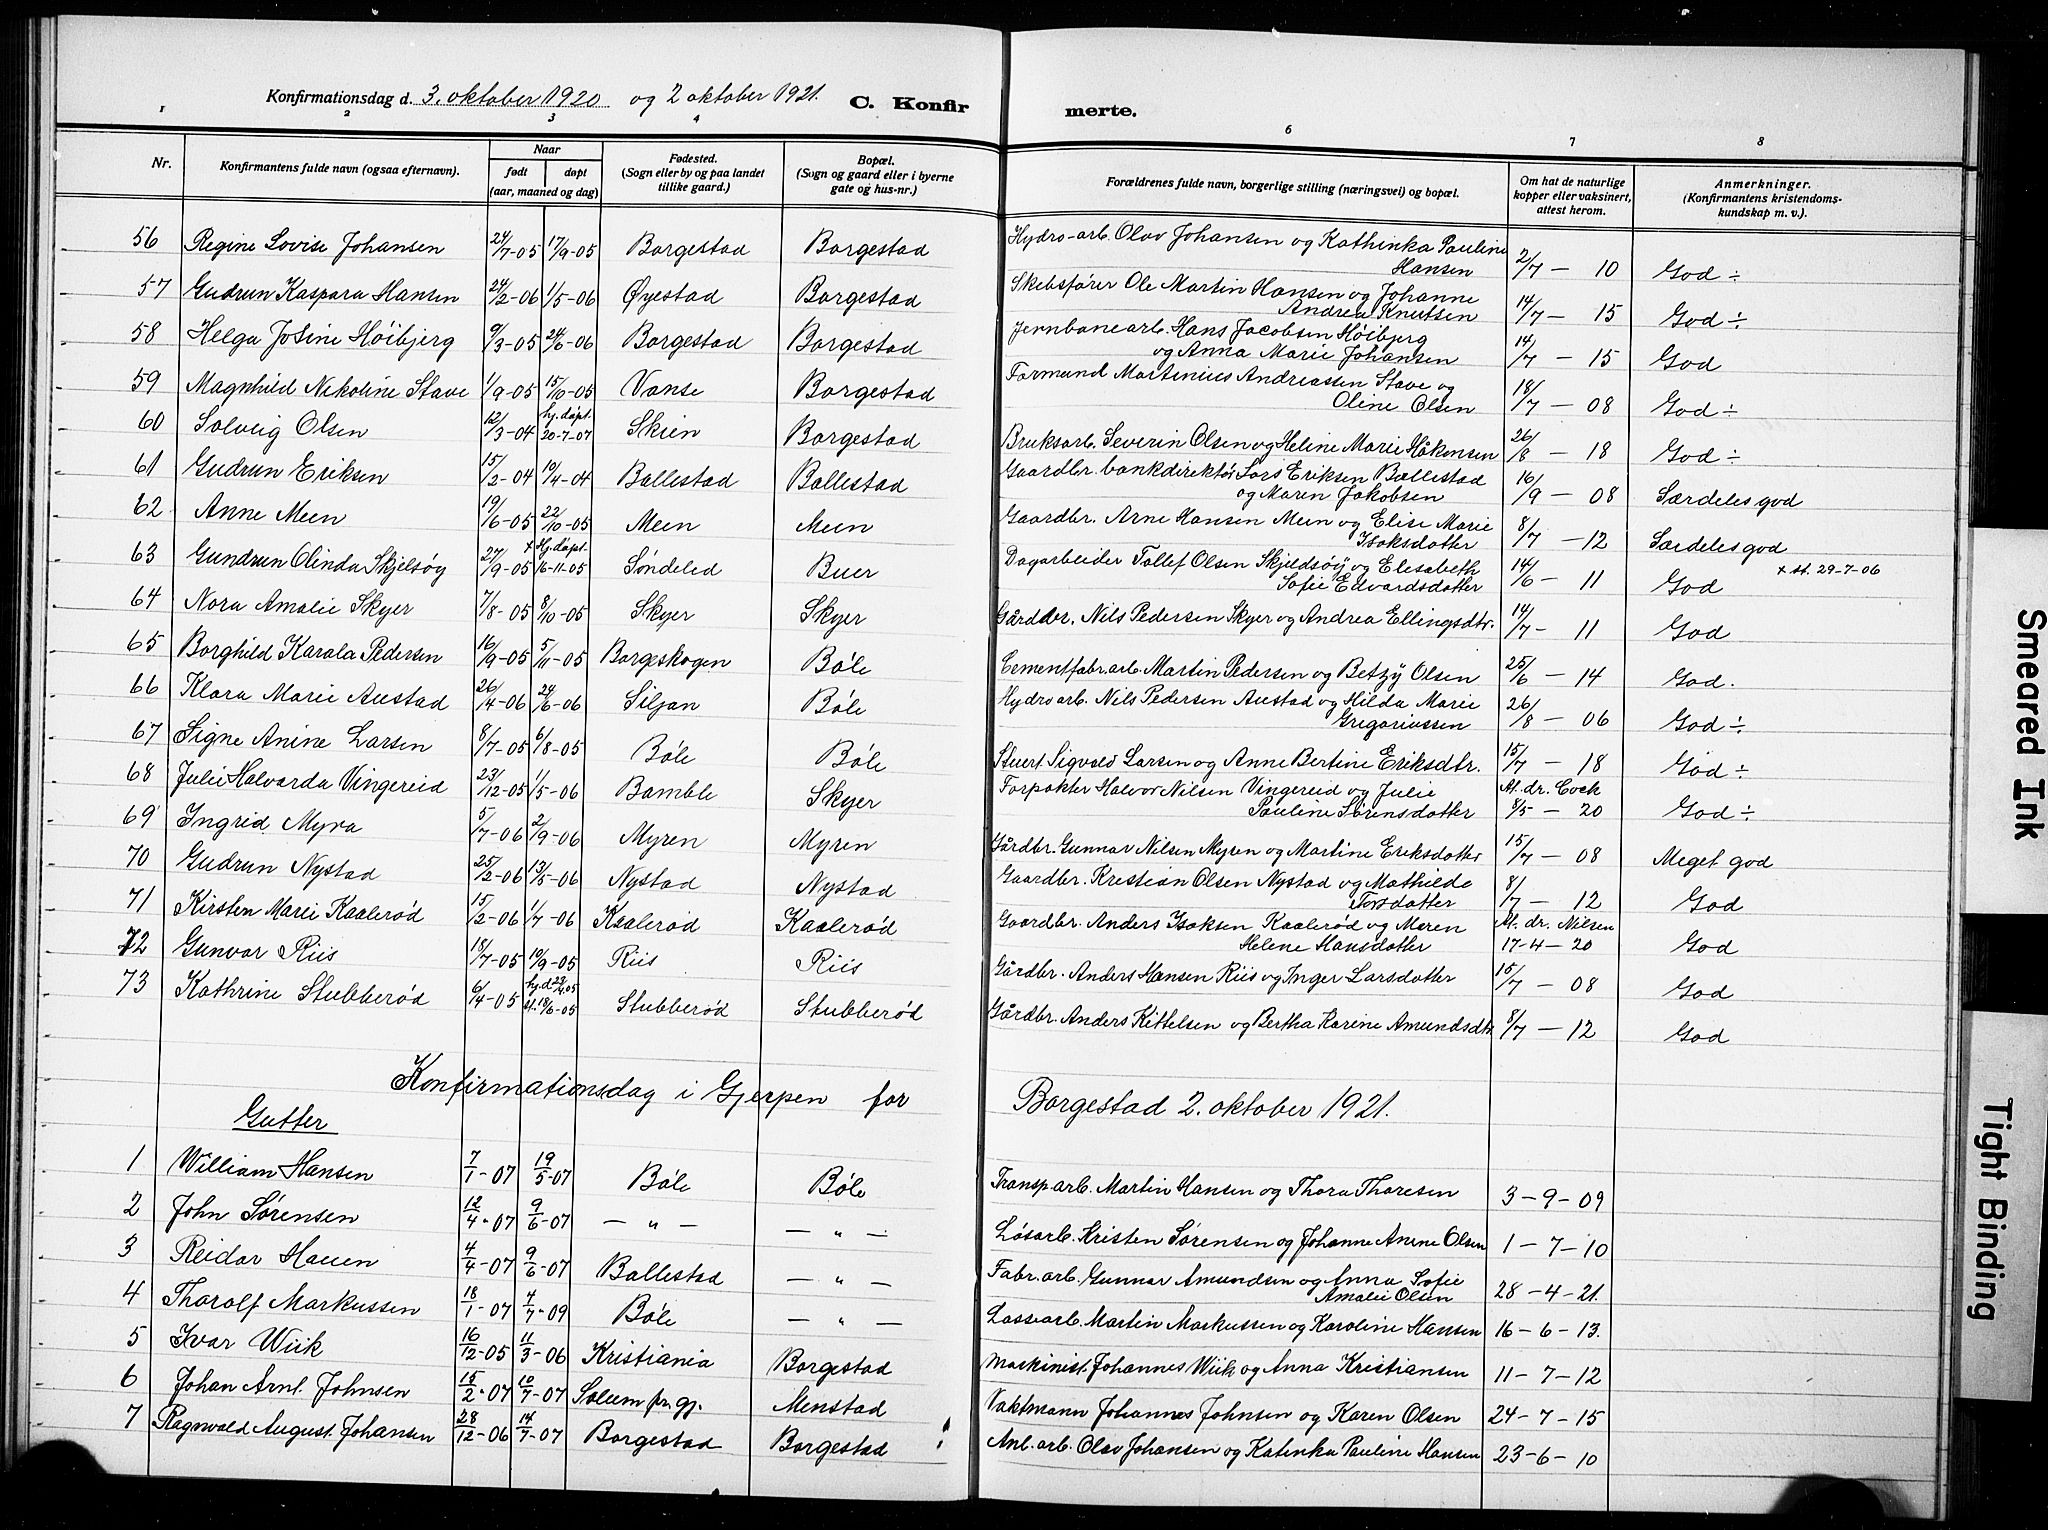 Konfirmationsdag d. 3. oktober 1920 og 2 oktober 1921. C. Konfir merte.
1 2 3 4 6 7 8
Nr. Konfirmantens fulde navn (ogsaa efternavn). Naar født døpt (aar, maaned og dag) Fødested. (Sogn eller by og paa landet tillike gaard.) Bopæl. (Sogn og gaard eller i byerne gate og hus-nr.) Forældrenes fulde navn, borgerlige stilling (næringsvei) og bopæl. Om hat de naturlige kopper eller vaksinert, attest herom. Anmerkninger. (Konfirmantens kristendoms-kundskap m. v.).
56 Regine Lovise Johansen 24/7-05 17/9-05 Borgestad Borgestad Hydro-arb. Olav Johansen og Kathinka Pauline Hansen 2/7 - 10 God ÷
57 Gudrun Kaspara Hansen 24/2-06 1/5-06 Øyestad Borgestad Skibsfører Ole Martin Hansen og Johanne Andrea Knutsen 14/7 - 15 God ÷
58 Helga Josine Høibjerg 9/3-05 24/6-06 Borgestad Borgestad Jernbanearb. Hans Jacobsen Høibjerg og Anna Marie Johansen 14/7 - 15 God
59 Magnhild Nikoline Stave 1/9-05 15/10-05 Vanse Borgestad Formand Martinius Andreassen Stave og Oline Olsen 18/7 - 08 God ÷
60 Solveig Olsen 12/3-04 hj. døpt 20-7-07 Skien Borgestad Bruksarb. Severin Olsen og Heline Marie Håkensen 26/8 - 18 God ÷
61 Gudrun Eriksen 15/2-04 10/4-04 Ballestad Ballestad Gaardbr. bankdirektør Lars Eriksen Ballestad og Maren Jakobsen 16/9 - 08 Særdeles god
62 Anne Meen 19/6-05 22/10-05 Meen Meen Gaardbr. Arne Hansen Meen og Elise Marie Isaksdotter 8/7 - 12 Særdeles god
63 Gundrun Olinda Skjelsøy 27/9-05 + Hj. døpt. 16-11-05 Søndeled Buer Dagarbeider Tollef Olsen Skjeldsøy og Elisabeth Sofie Edvardsdotter 14/6 - 11 God + st. 29-7-06
64 Nora Amalie Skyer 7/8-05 8/10-05 Skyer Skyer Gårdbr. Nils Pedersen Skyer og Andrea Ellingsdtr. 14/7 - 11 God
65 Borghild Karola Pedersen 16/9-05 5/11-05 Borgeskogen Bøle Cementfabr.arb. Martin Pedersen og Betzy Olsen 25/6 - 14 God.
66 Klara Marie Austad 26/4-06 24/6-06 Siljan Bøle Hydro arb. Nils Pedersen Austad og Hilda Marie Gregoriussen 26/8 - 06 God ÷
67 Signe Anine Larsen 8/7-05 6/8-05 Bøle Bøle Stuert Sigvald Larsen og Anne Bertine Eriksdtr. 15/7 - 18 God ÷
68 Julie Halvarda Vingereid 23/12-05 1/5-06 Bamble Skyer Forpakter Halvor Nilsen Vingereid og Julie Pauline Sørensdotter At. dr. Cock 8/5 - 20 God ÷
69 Ingrid Myra 5/7-06 2/9-06 Myren Myren Gårdbr. Gunnar Nilsen Myren og Martine Eriksdotter 15/7 - 08 Meget god
70 Gudrun Nystad 25/2-06 13/5-06 Nystad Nystad Gaardbr. Kristian Olsen Nystad og Mathilde Torsdotter 8/7 - 12 God
71 Kirsten Marie Kaalerød 15/2-06 1/7-06 Kaalerød Kaalerød Gaardbr. Anders Isaksen Kaalerød og Maren Helene Hansdotter At. dr. Nilsen 17-4-20 God
72 Gunvor Riis 18/7-05 10/9-05 Riis Riis Gårdbr. Anders Hansen Riis og Inger Larsdotter 15/7 - 08 God
73 Kathrine Stubberød 6/4-05 hj.d 23/4 05 st. 18/6-05 Stubberød Stubberød Gårdbr. Anders Kittelsen og Bertha Karine Amundsdtr 8/7 - 12 God
Konfirmationsdag i Gjerpen for Borgestad 2. oktober 1921.
Gutter
1 William Hansen 7/1-07 19/5-07 Bøle Bøle Transp.arb. Martin Hansen og Thora Thoresen 3-9-09
2 John Sørensen 12/4-07 9/6-07 — " — — " — Løsarb. Kristen Sørensen og Johanne Anine Olsen 1-7-10
3 Reidar Hauen 4/4-07 9/6-07 Ballestad — " — Fabr.arb. Gunnar Amundsen og Anna Sofie Amalie Olsen 28-4-21.
4 Thorolf Markussen 18/1-07 4/7-09 Bøle — " — Lossearb. Martin Markussen og Karoline Hansen 16-6-13.
5 Ivar Wiik 16/12-05 11/3-06 Kristiania Borgestad Maskinist Johannes Wiik og Anna Kristiansen 11-7-12
6 Johan Arnt Johnsen 15/2-07 10/7-07 Solum pr. gj. Menstad Vaktmann Johannes Johnsen og Karen Olsen 24-7-15
7 Ragnvald August Johansen 28/12-06 14/7-07 Borgestad Borgestad Anl.arb. Olav Johansen og Katinka Pauline Hansen 23-6-10
Smeared Ink
Tight Binding